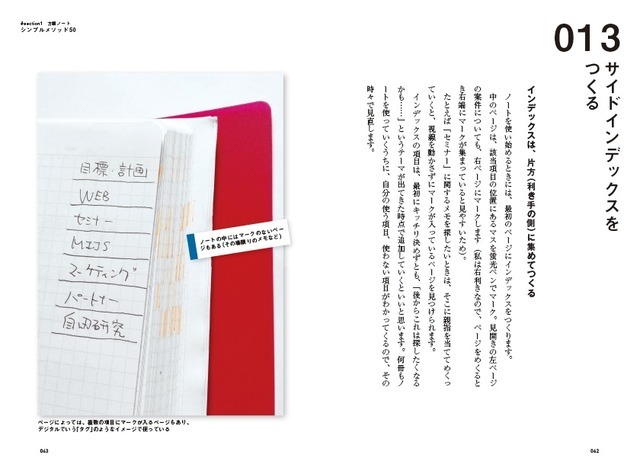 013
サイドインデックスを
つくる
インデックスは、片方(利き手の側)に集めてつくる
ノートを使い始めるときには、最初のページにインデックスをつくります。
中のページは、該当項目の位置にあるマスを蛍光ペンでマーク。見開きの左ページ
の案件についても、右ページにマークします(私は右利きなので、ページをめくると
き右端にマークが集まっていると見やすいため)。
たとえば「セミナー」に関するメモを探したいときは、そこに親指を当ててめくっ
ていくと、視線を動かさずにマークが入っているページを見つけられます。
インデックスの項目は、最初にキッチリ決めずとも、「後からこれは探したくなる
かも……」というテーマが出てきた時点で追加していくといいと思います。何冊もノ
ートを使っていくうちに、自分の使う項目、使わない項目がわかってくるので、その
時々で見直します。
062
#section1 方眼ノート
シンプルメソッド50
目標・計画
WEB
セミナー
MIJS
マーケティング
パートナー
自由研究
ノートの中にはマークのないペー
ジもある(その場限りのメモなど)
ページによっては、複数の項目にマークが入るページもあり、
デジタルでいう「タグ」のようなイメージで使っている
063